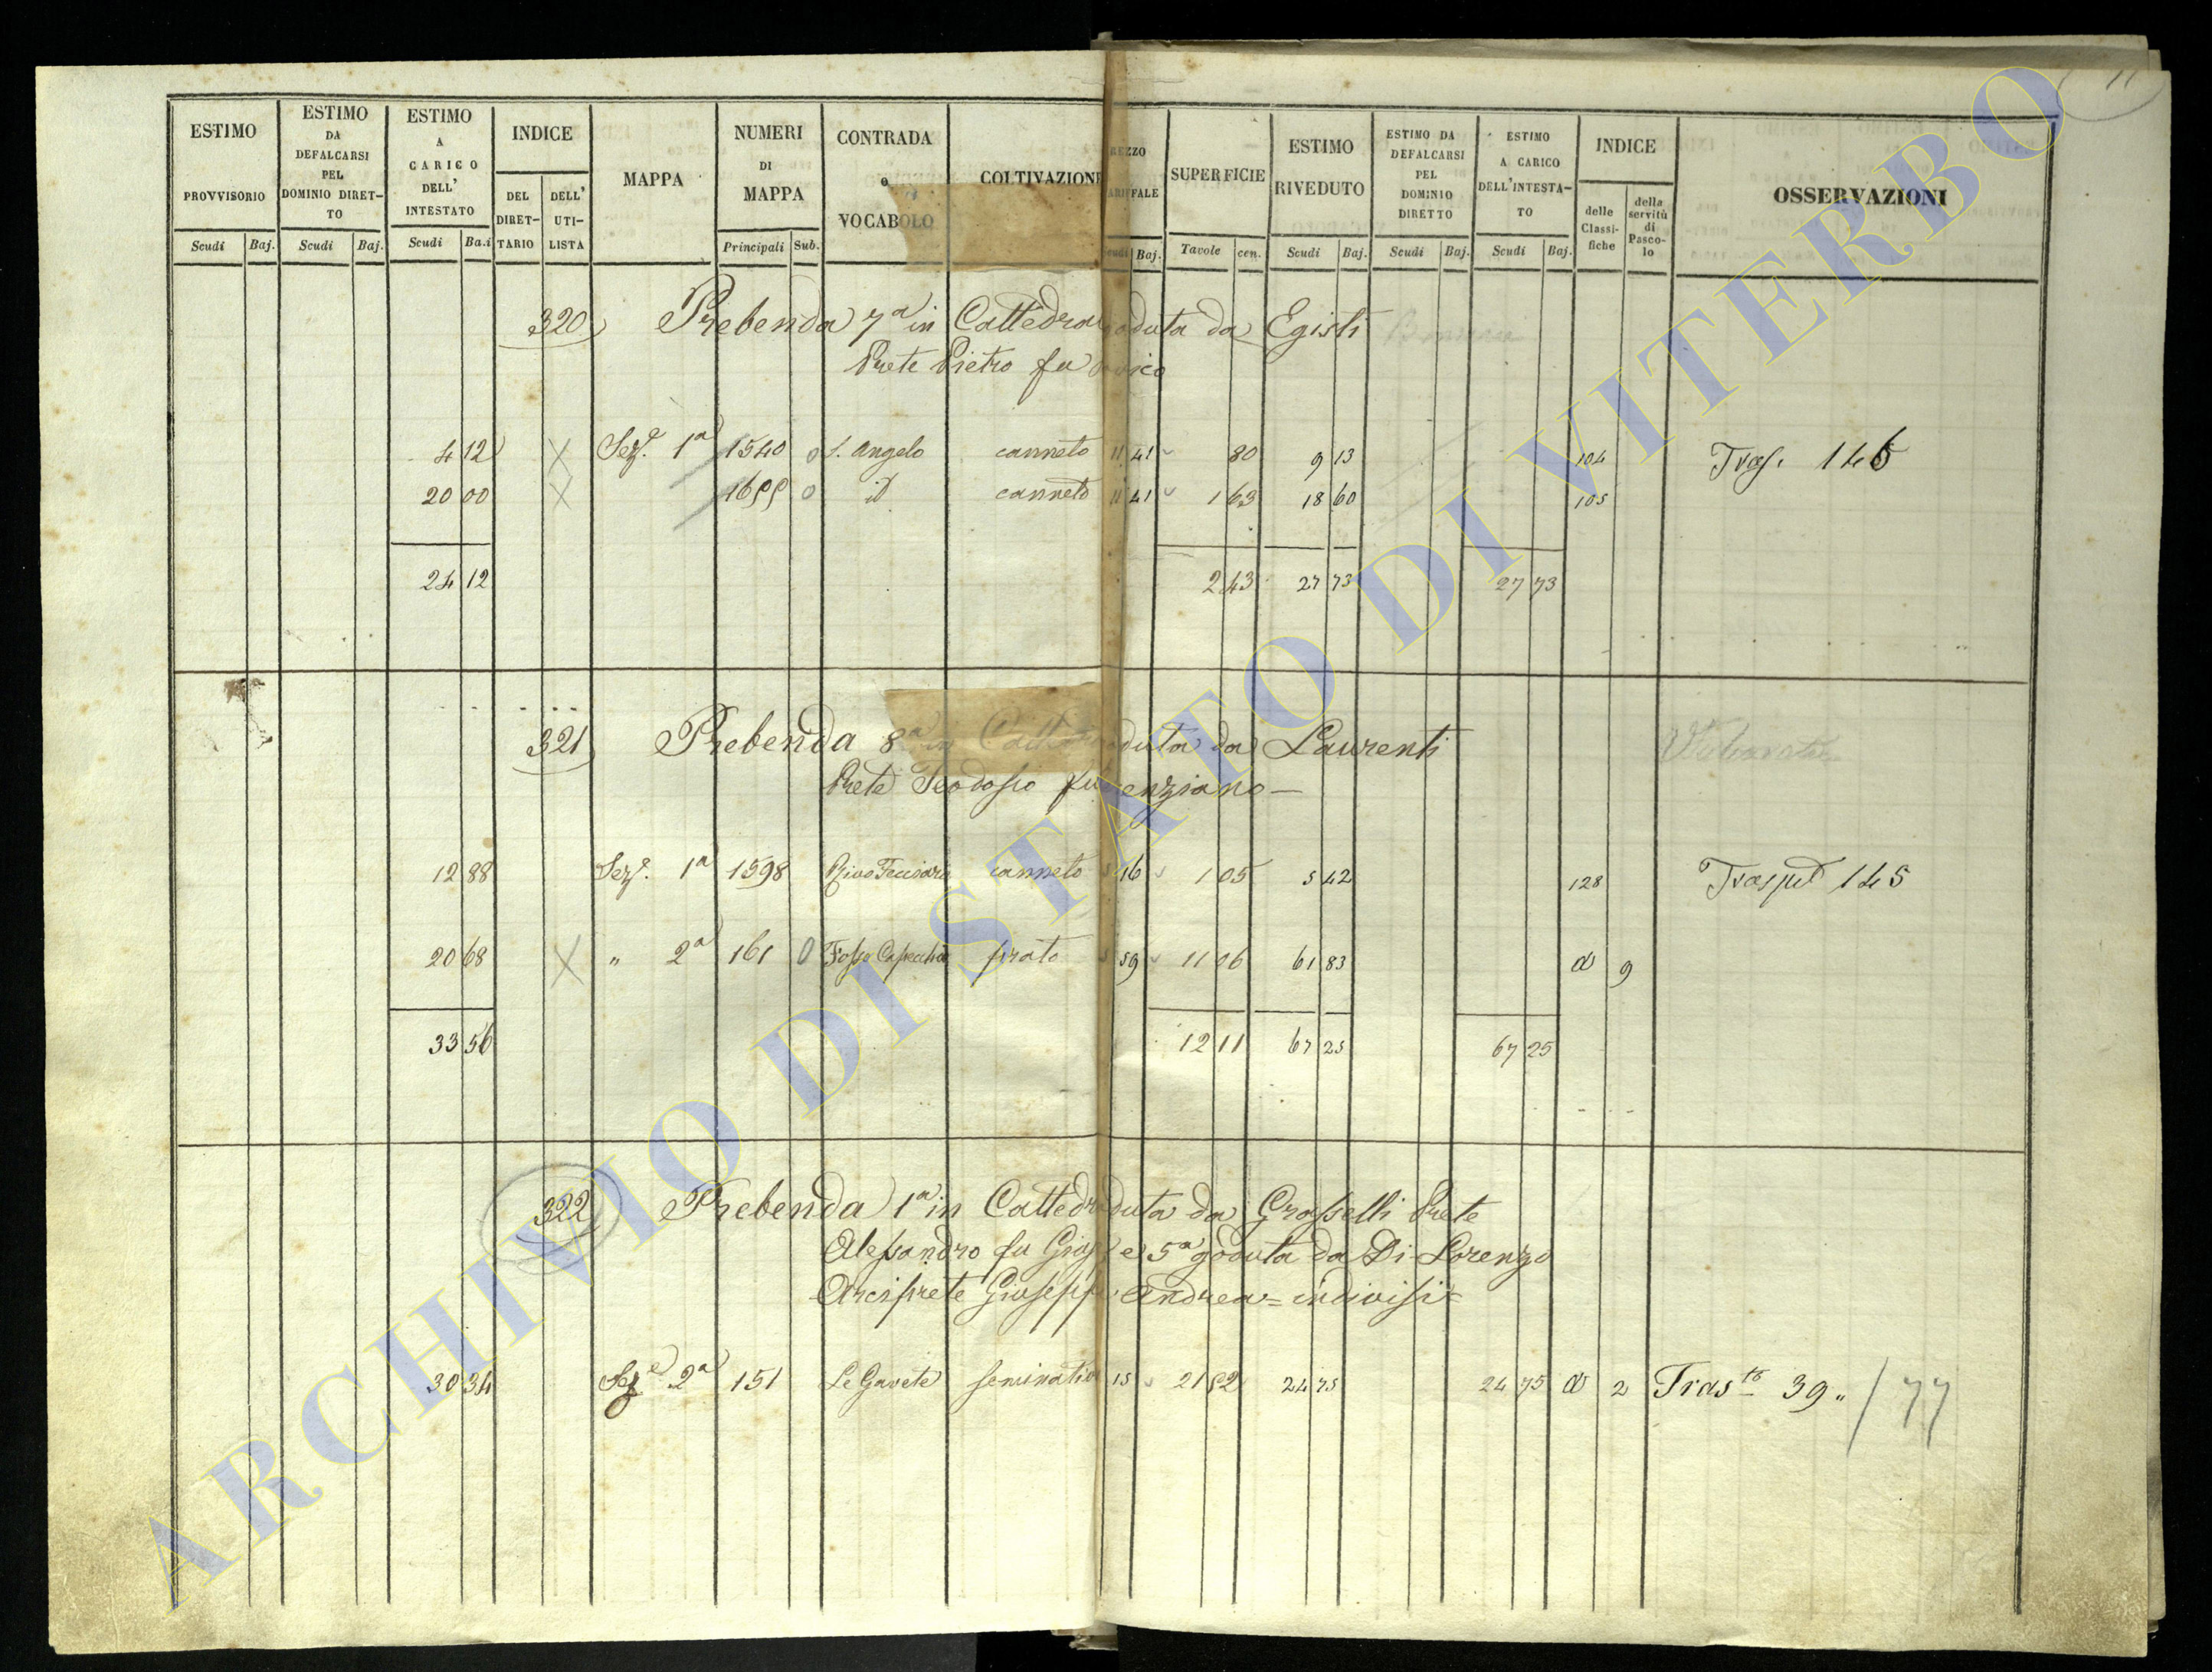 11
ESTIMO PROVVISORIO
ESTIMO DA DEFALCARSI PEL DOMINIO DIRETTO
ESTIMO A CARICO DELL' INTESTATO
INDICE
DEL DIRETTARIO
DELL' UTILISTA
MAPPA
NUMERI DI MAPPA
CONTRADA o VOCABOLO
COLTIVAZIONE
SUPERFICIE
ESTIMO RIVEDUTO
ESTIMO DA DEFALCARSI PEL DOMINIO DIRETTO
ESTIMO A CARICO DELL'INTESTATO
INDICE
delle Classifiche
della servitù di Pascolo
OSSERVAZIONI
Scudi Baj. Scudi Baj. Scudi Baj. Principali Sub. Scudi Baj. Tavole cen. Scudi Baj. Scudi Baj. Scudi Baj.
320 Prebenda 7a in Cattedral oduta da Egisti
Prete Pietro fu
4 12 X Seze. 1a 1540 0 S. Angelo canneto 11 41 80 9 13 104 Tras. 146
20 00 X 1699 0 id canneto 11 41 1 63 18 60 105
24 12 2 43 27 73 27 73
321 Prebenda 8a in Catted duta da Laurenti
Prete Teodosio fu enziano
12 88 Seze. 1a 1598 canneto 5 16 1 05 5 42 128 Traspto 145
20 68 X " 2a 161 0 Fosso prato 5 59 11 06 61 83 a 9
33 56 12 11 67 25 67 25
322 Prebenda 1a in Cattedr duta da Grasselli Prete
Alessandro fu Gius e 5a goduta da Di Lorenzo
Arciprete Giuseppe Andrea = indivisi =
30 34 Seze 2a 151 Le Gavete seminativo 15 21 52 24 75 24 75 a 2 Trasto 39 " / 77
ARCHIVIO DI STATO DI VITERBO